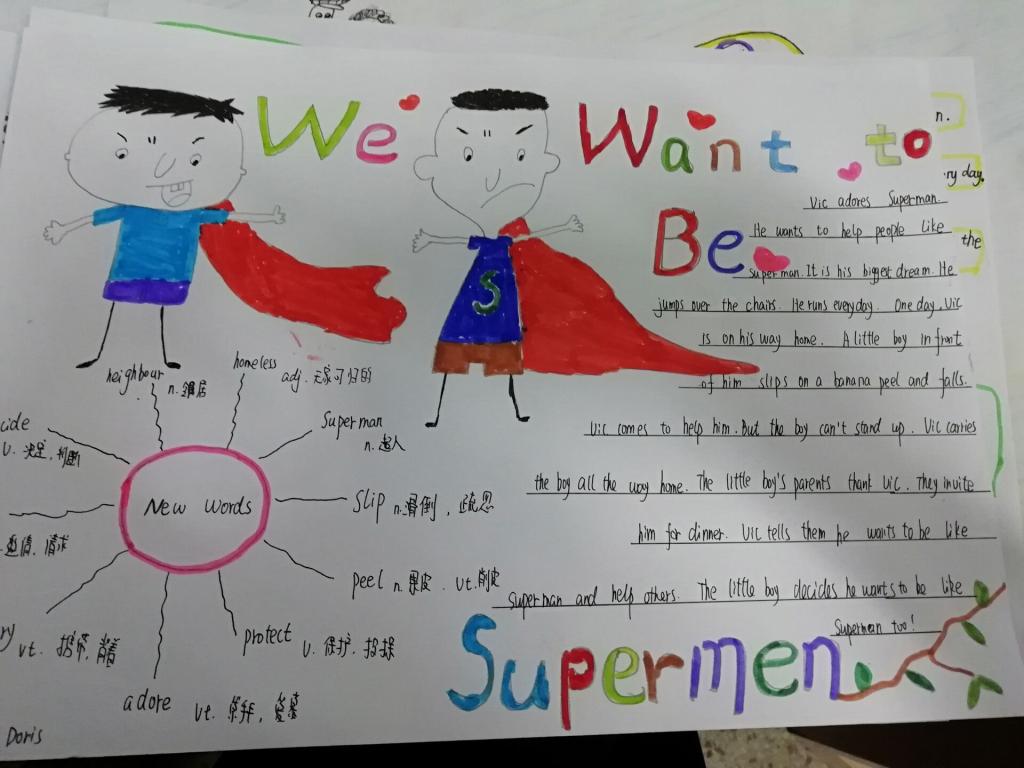 We Want to
Be
Supermen
Vic adores Superman.
He wants to help people like
superman. It is his biggest dream. He
jumps over the chairs. He runs everyday. One day, Vic
is on his way home. A little boy in front
of him slips on a banana peel and falls.
Vic comes to help him. But the boy can't stand up. Vic carries
the boy all the way home. The little boy's parents thank Vic. They invite
him for dinner. Vic tells them he wants to be like
superman and help others. The little boy decides he wants to be like
Superman too!
S
New Words
neighbour
n. 邻居
homeless
adj. 无家可归的
Superman
n. 超人
slip n. 滑倒, 疏忽
peel n. 果皮. vt. 削皮
protect
v. 保护,
adore vt. 崇拜, 爱慕
ry vt. 携带,
邀请, 请求
cide
v. 决定, 判断
Doris
n.
ry day.
the